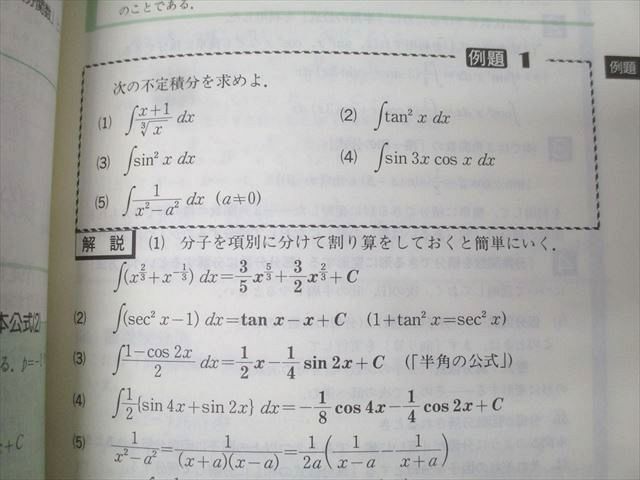 のことである.
例題 1
例題
次の不定積分を求めよ.
(1) ∫(x+1)/∛x dx (2) ∫tan² x dx
(3) ∫sin² x dx (4) ∫sin 3x cos x dx
(5) ∫1/(x²−a²) dx (a≠0)
解説 (1) 分子を項別に分けて割り算をしておくと簡単にいく.
∫(x^{2/3}+x^{-1/3}) dx=3/5 x^{5/3}+3/2 x^{2/3}+C
(2) ∫(sec² x−1) dx=tan x−x+C (1+tan² x=sec² x)
(3) ∫(1−cos 2x)/2 dx=1/2 x−1/4 sin 2x+C (「半角の公式」)
(4) ∫1/2{sin 4x+sin 2x} dx=−1/8 cos 4x−1/4 cos 2x+C
(5) 1/(x²−a²)=1/((x+a)(x−a))=1/2a(1/(x−a)−1/(x+a))
本公式(2)